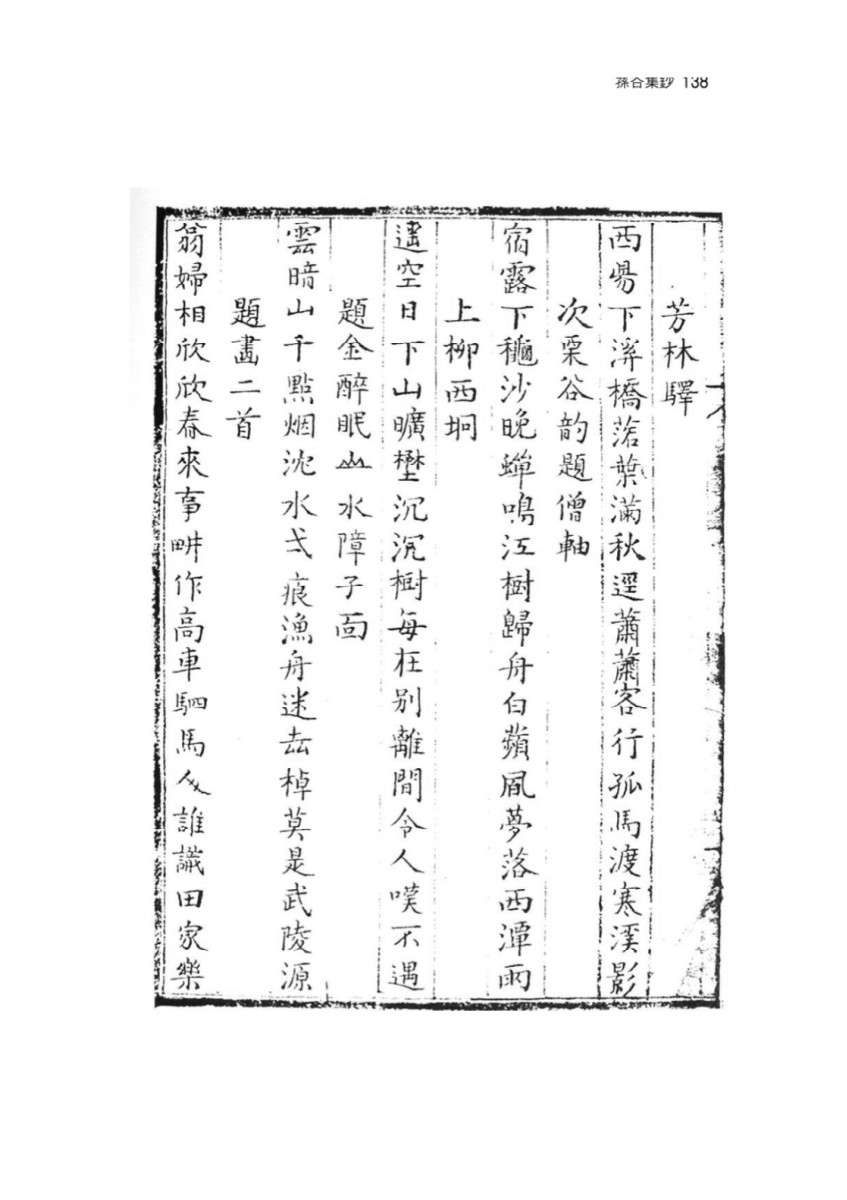 蓀谷集鈔 138
芳林驛
西昜下溪橋落葉滿秋逕蕭蕭客行孤馬渡寒溪影
次栗谷韵題僧軸
宿露下穐沙晚蟬鳴江樹歸舟白蘋風夢落西潭雨
上柳西坰
遙空日下山曠壄沉沉樹每在別離間令人嘆不遇
題金醉眠山水障子面
雲暗山千點烟沈水弌痕漁舟迷去棹莫是武陵源
題畫二首
翁婦相欣欣春來事畊作高車駟馬人誰識田家樂